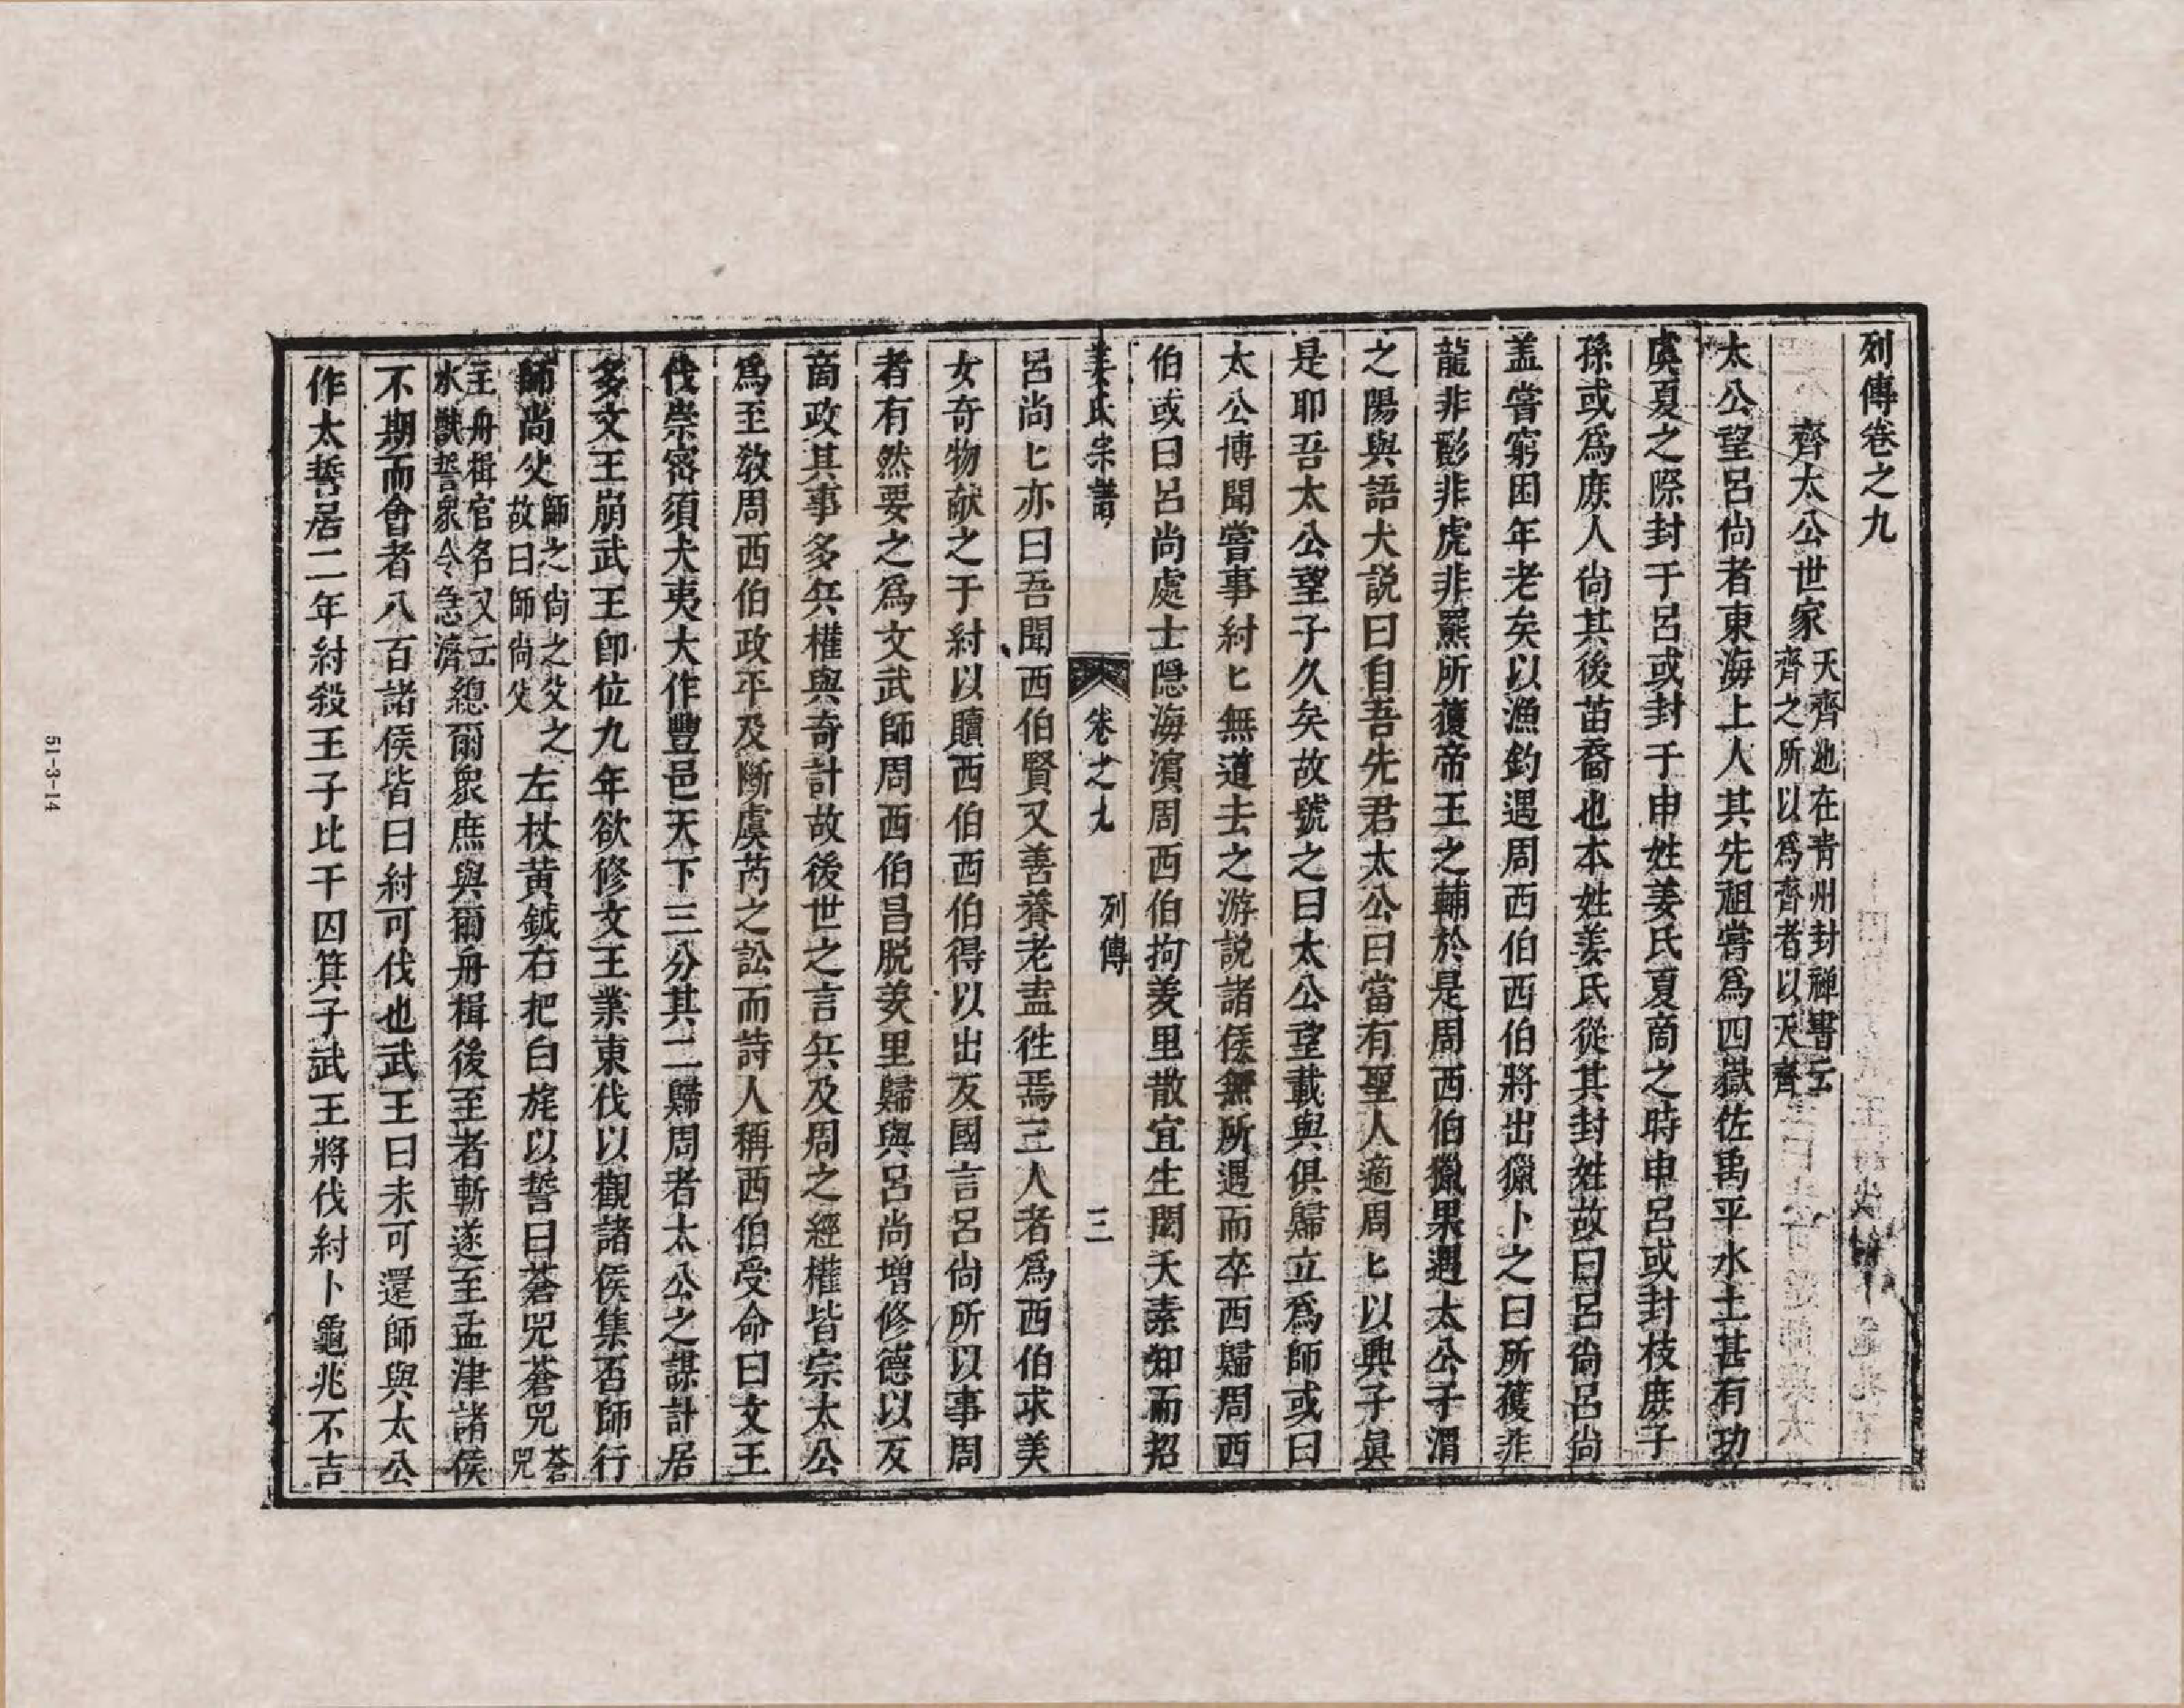 列傳卷之九
齊太公世家天齊池在青州封禅書云齊之所以爲齊者以天齊
太公望呂尙者東海上人其先祖嘗爲四嶽佐禹平水土甚有功
虞夏之際封于呂或封于申姓姜氏夏商之時申呂或封枝庶子
孫或爲庶人尙其後苗裔也本姓姜氏從其封姓故曰呂尙呂尙
盖嘗窮困年老矣以漁釣遇周西伯西伯將出獵卜之曰所獲非
龍非彲非虎非羆所獲帝王之輔於是周西伯獵果遇太公于渭
之陽與語大説曰自吾先君太公曰當有聖人適周匕以興子眞
是耶吾太公望子久矣故號之曰太公望載與俱歸立爲師或曰
太公博聞嘗事紂匕無道去之游説諸侯無所遇而卒西歸周西
伯或曰呂尚處士隠海濵周西伯拘羑里散宜生閎夭素知而招
姜氏宗譜 卷之九 列傳 三
呂尚匕亦曰吾聞西伯賢又善養老盍徃焉三人者爲西伯求美
女奇物献之于紂以贖西伯西伯得以出反國言呂尙所以事周
者有然要之爲文武師周西伯昌脱羑里歸與呂尚增修德以反
商政其事多兵權與奇計故後世之言兵及周之經權皆宗太公
爲至教周西伯政平及斷虞芮之訟而詩人稱西伯受命曰文王
伐崇宻須犬夷大作豐邑天下三分其二歸周者太公之謀計居
多文王崩武王卽位九年欲修文王業東伐以觀諸侯集否師行
師尚父師之尙之父之故曰師尙父左杖黄鉞右把白旄以誓曰蒼兕蒼兕蒼兕
主舟楫官名又云水獸誓衆令急濟總爾衆庶與爾舟楫後至者斬遂至孟津諸侯
不期而會者八百諸侯皆曰紂可伐也武王曰未可還師與太公
作太誓居二年紂殺王子比干囚箕子武王將伐紂卜龜兆不吉
51-3-14